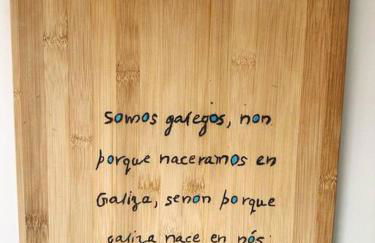 Somos galegos, non
porque naceramos en
Galiza, senon porque
galiza nace en nós